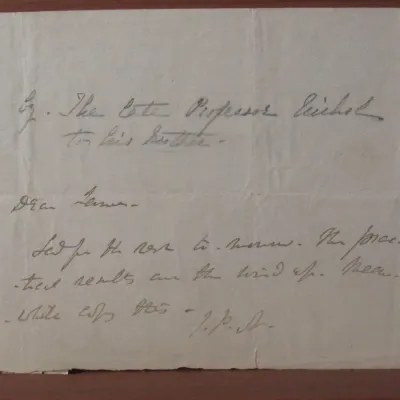 The late Professor Nichol
to his brother -
Dear James -
Led for the rest to-morrow. The prac-
-tical results are the wind up. Mean-
-while copy this -
J. P. N.